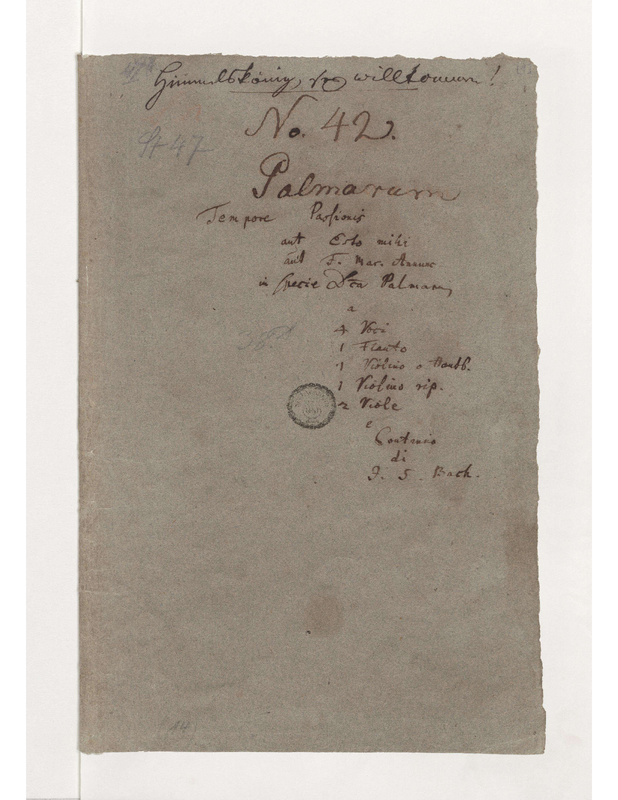 Himmelskönig, sey willkommen!
No. 42.
St 47
Palmarum
Tempore Passionis
aut Esto mihi
aut F. Mar. Annunc
in specie Dca Palmarum
a
4 Voci
1 Flauto
1 Violino o Hautb.
1 Violino rip.
2 Viole
e
Continuo
di
J. S. Bach.
14